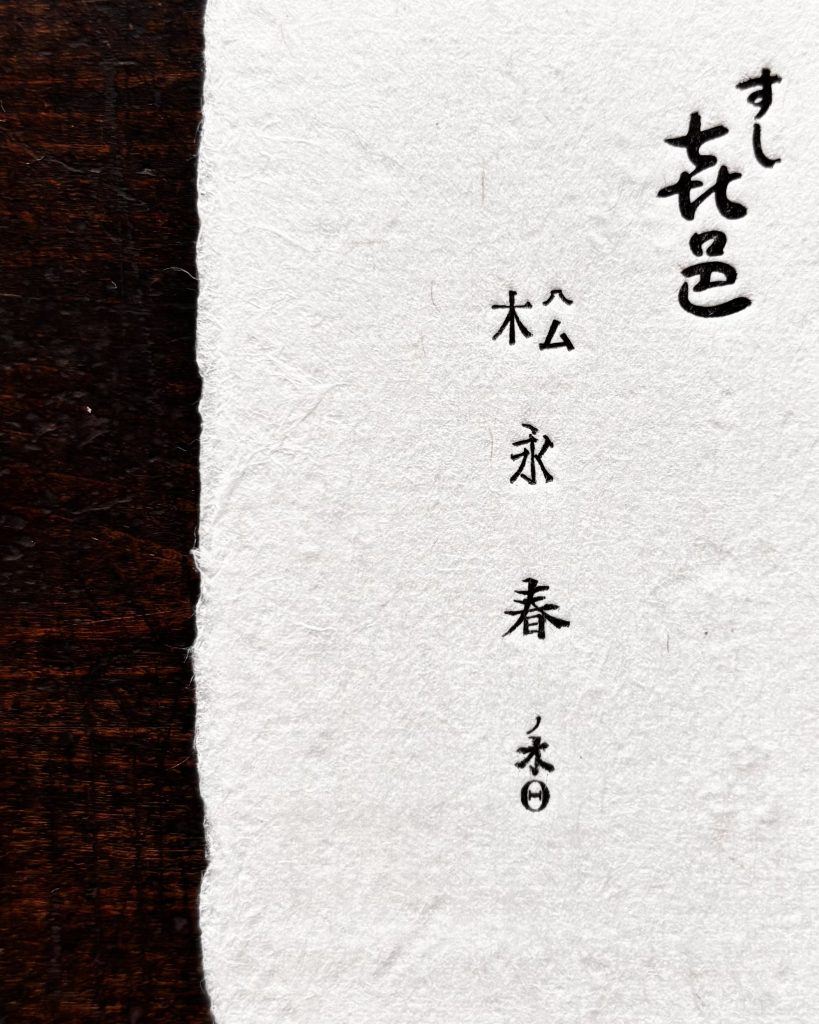 すし
㐂邑
松永春香